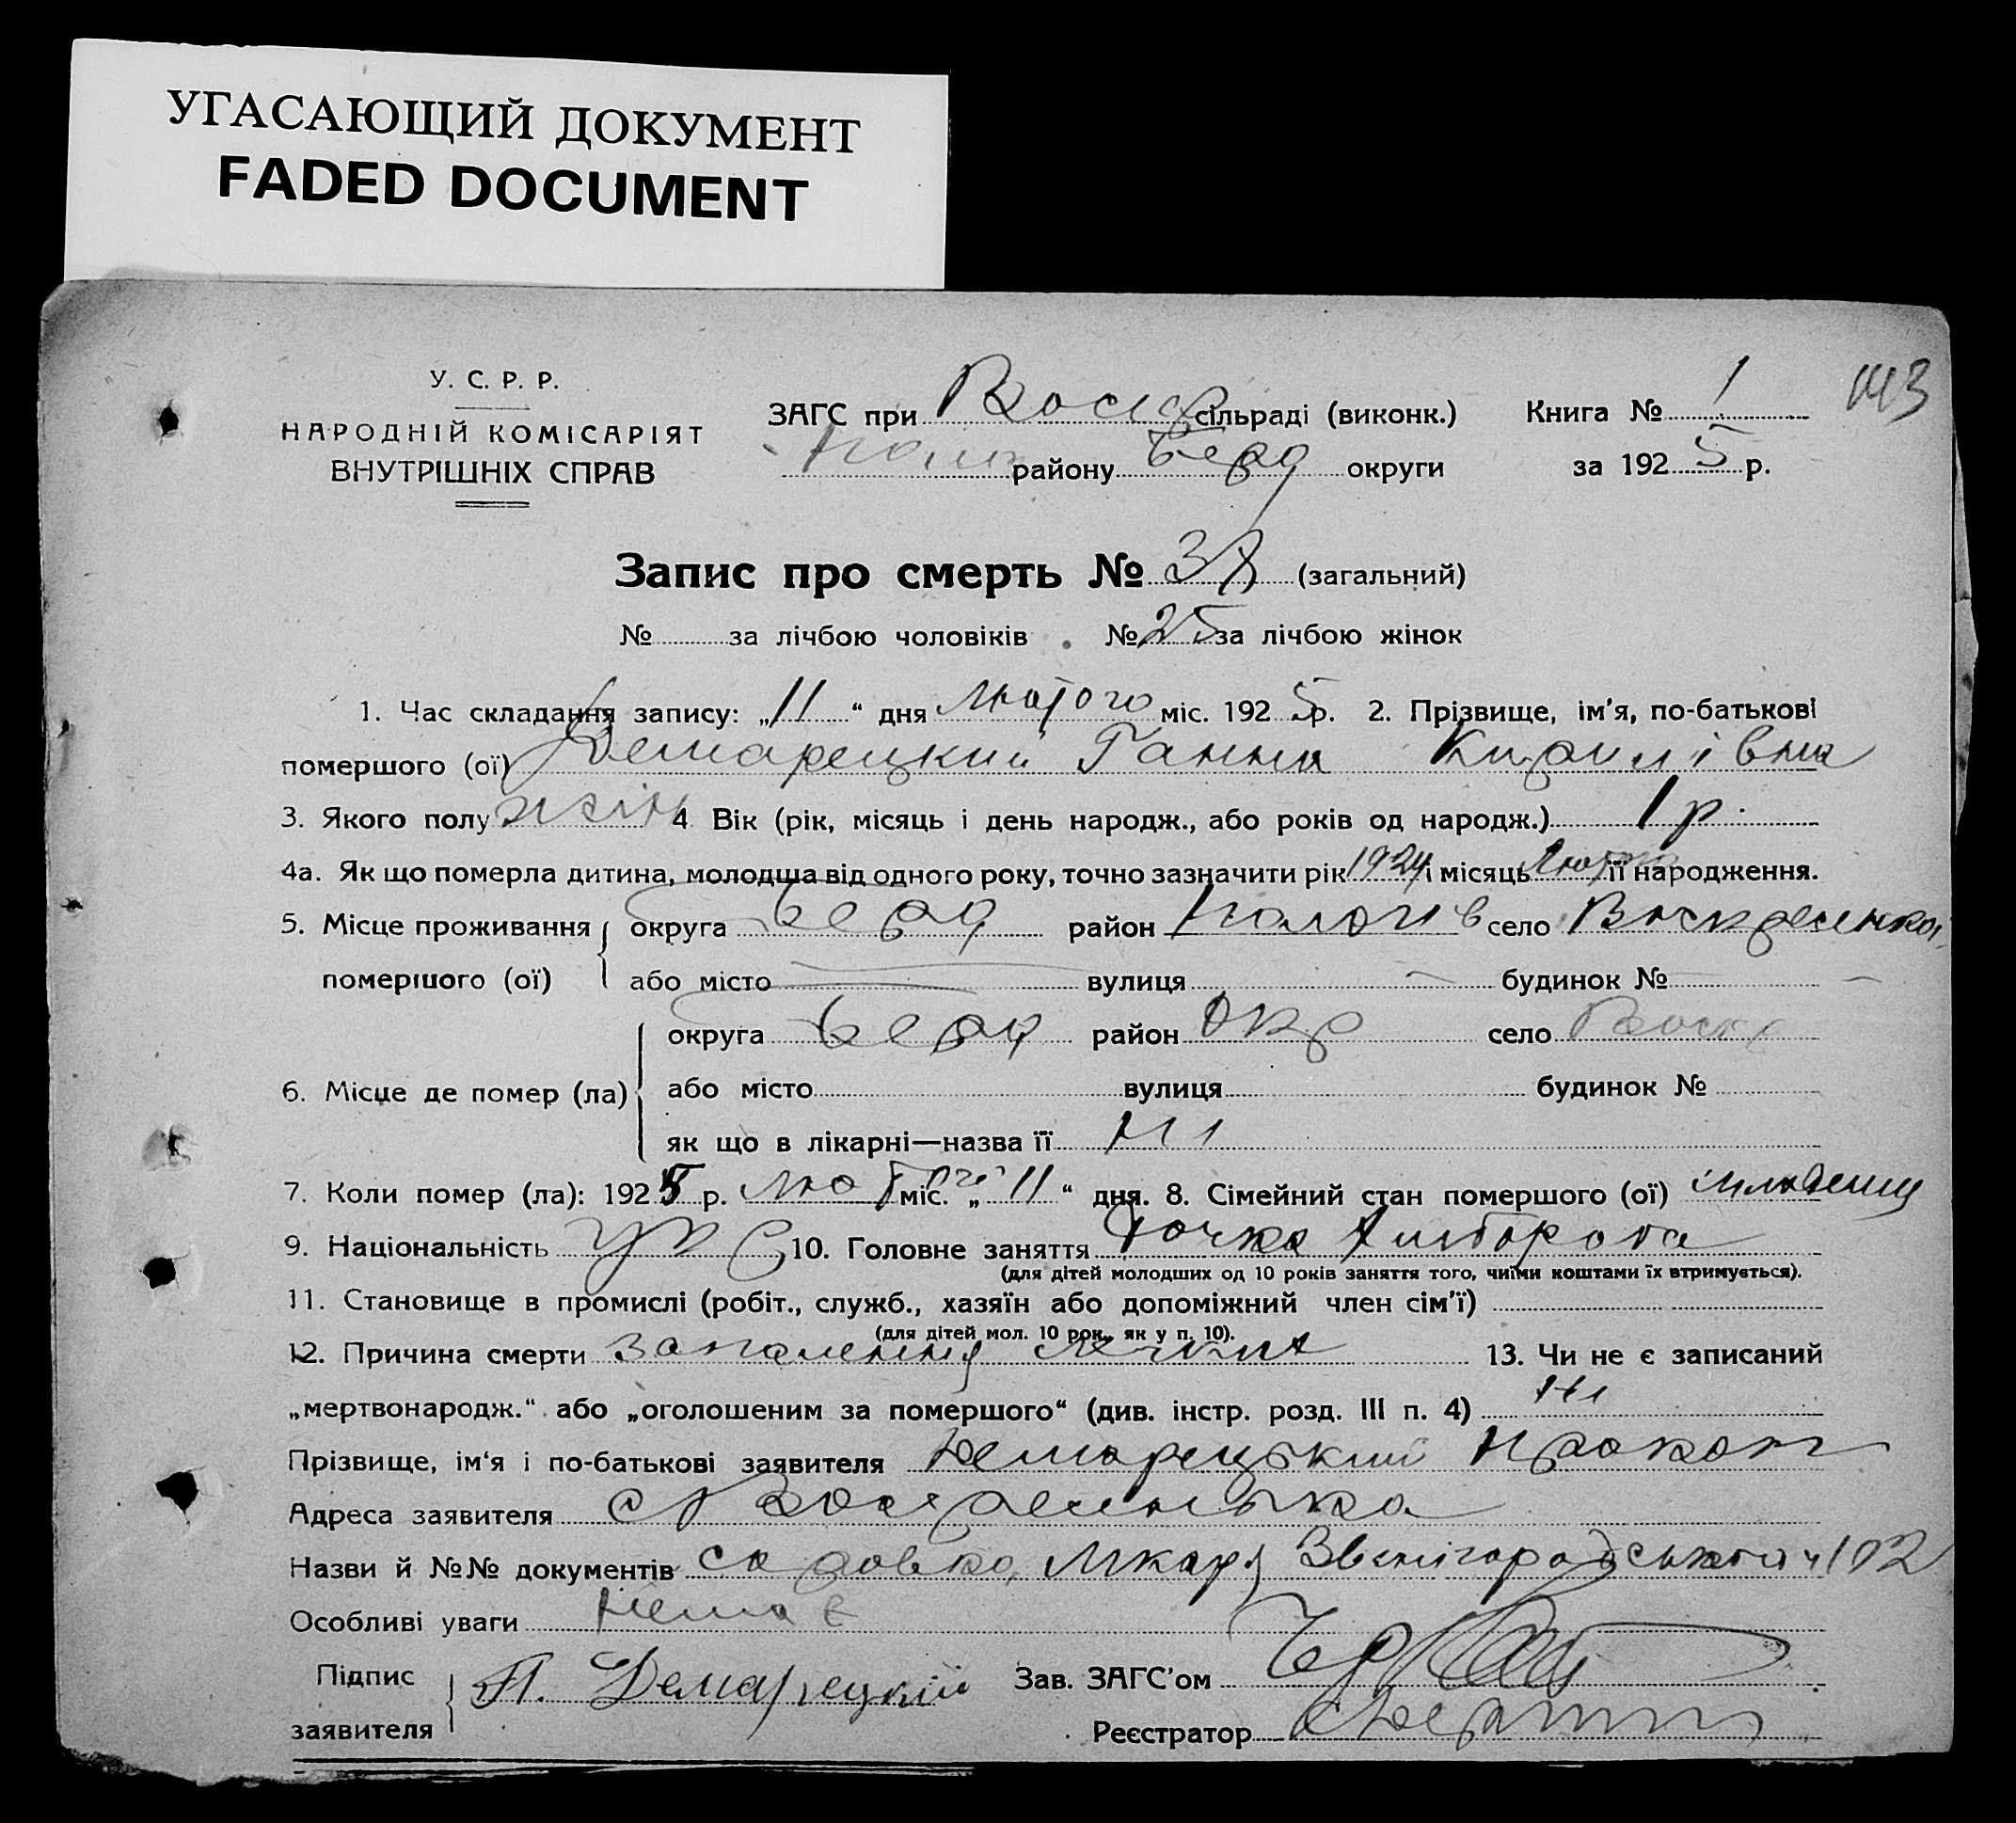 УГАСАЮЩИЙ ДОКУМЕНТ
FADED DOCUMENT
У. С. Р. Р.
НАРОДНІЙ КОМІСАРІЯТ
ВНУТРІШНІХ СПРАВ
ЗАГС при Воскр сільраді (виконк.)
району Берд округи
Книга № 1
за 1925 р.
143
Запис про смерть № (загальний)
№ за лічбою чоловіків № 25 за лічбою жінок
1. Час складання запису: „11“ дня лютого міс. 1925 р. 2. Прізвище, ім'я, по-батькові
помершого (ої) Демарецкий Ганна Кирилівна
3. Якого полу жін 4 Вік (рік, місяць і день народж., або років од народж.) 1 р.
4а. Як що померла дитина, молодша від одного року, точно зазначити рік 1924 і місяць її народження.
5. Місце проживання помершого (ої) округа Берд район Пологів село
або місто — вулиця — будинок № —
6. Місце де помер (ла) округа Берд район село Воскр
або місто вулиця будинок №
як що в лікарні—назва її Ні
7. Коли помер (ла): 1925 р. лютого міс. „11“ дня. 8. Сімейний стан помершого (ої)
9. Національність укр 10. Головне заняття Дочка
(для дітей молодших од 10 років заняття того, чиїми коштами їх втримується).
11. Становище в промислі (робіт., служб., хазяїн або допоміжний член сім'ї)
(для дітей мол. 10 рок., як у п. 10).
12. Причина смерти запалення 13. Чи не є записаний
„мертвонародж.“ або „оголошеним за помершого“ (див. інстр. розд. III п. 4) Ні
Прізвище, ім'я і по-батькові заявителя Демарецький Прокоп
Адреса заявителя с Воскресенька
Назви й №№ документів лікаря Звенігородського ч 102
Особливі уваги Немає
Підпис заявителя П. Демарецкий
Зав. ЗАГС'ом
Реєстратор